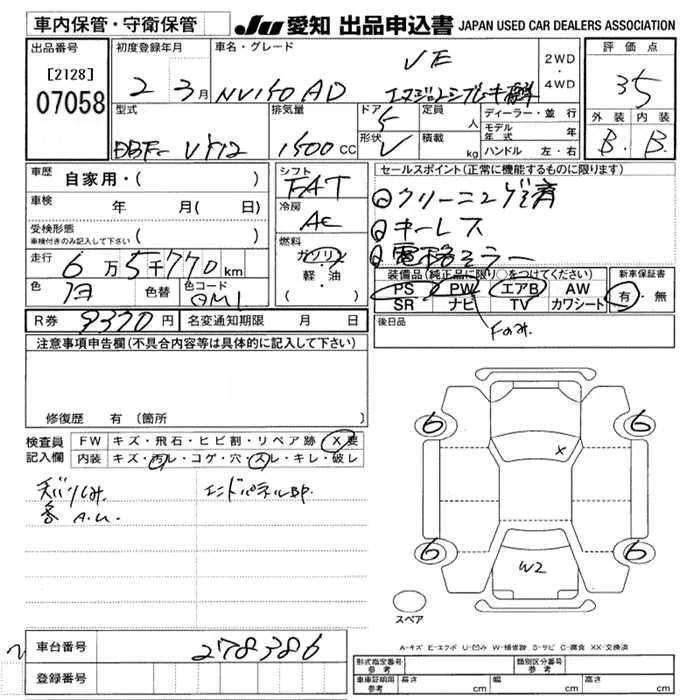 車内保管・守衛保管
JU 愛知 出品申込書 JAPAN USED CAR DEALERS ASSOCIATION
出品番号
[2128]
07058
初度登録年月
2 3月
車名・グレード
NV150 AD VE
2WD
・
4WD
評価点
35
外装 内装
B. B.
型式
DBF- VY12
排気量
1500 CC
ドア 5
形状 V
定員 人
積載 kg
ディーラー・並行
モデル年式 年
ハンドル 左・右
車歴 自家用・( )
車検 年 月(日)
受検形態
車検付きのみ記入して下さい ( )
走行 6万5千770km
色 白 色替 色コード QM1
シフト
FAT
冷房
AC
燃料
ガソリン
軽・油
( )
セールスポイント(正常に機能するものに限ります)
①クリーニング済
②キーレス
③電格ミラー
装備品(純正品に限り○をつけてください)
PS PW エアB AW
SR ナビ TV カワシート
Fのみ.
新車保証書
有・無
R券 9370円 名変通知期限 月 日
後日品
注意事項申告欄(不具合内容等は具体的に記入して下さい)
修復歴 有 (箇所 )
検査員
記入欄
FW キズ・飛石・ヒビ割・リペア跡 X要
内装 キズ・汚レ・コゲ・穴・スレ・キレ・破レ
天バリしみ.
各 A.U.
エンドパネルBP.
6 6
X
6 6
W2
スペア
A-キズ E-エクボ U-凹み W-補修跡 S-サビ C-腐食 XX-交換済
車台番号 278386
登録番号
型式指定番号
参考
類別区分番号
参考
車庫証明用
参考
長さ cm 幅 cm 高さ cm